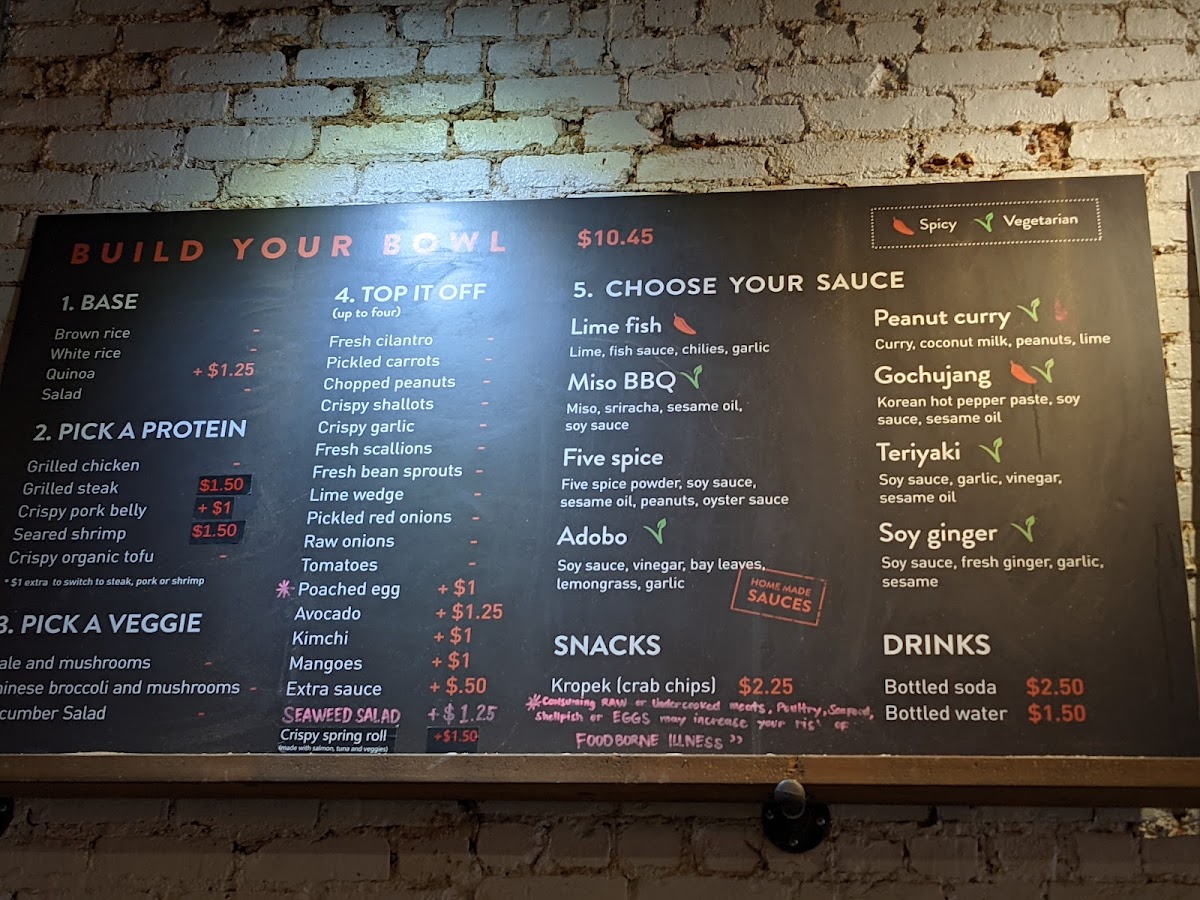 BUILD YOUR BOWL $10.45
Spicy Vegetarian
1. BASE
Brown rice -
White rice -
Quinoa + $1.25
Salad -
2. PICK A PROTEIN
Grilled chicken -
Grilled steak $1.50
Crispy pork belly + $1
Seared shrimp $1.50
Crispy organic tofu -
* $1 extra to switch to steak, pork or shrimp
3. PICK A VEGGIE
ale and mushrooms -
hinese broccoli and mushrooms -
cumber Salad -
4. TOP IT OFF
(up to four)
Fresh cilantro -
Pickled carrots -
Chopped peanuts -
Crispy shallots -
Crispy garlic -
Fresh scallions -
Fresh bean sprouts -
Lime wedge -
Pickled red onions -
Raw onions -
Tomatoes -
* Poached egg + $1
Avocado + $1.25
Kimchi + $1
Mangoes + $1
Extra sauce + $.50
SEAWEED SALAD + $1.25
Crispy spring roll +$1.50
(made with salmon, tuna and veggies)
5. CHOOSE YOUR SAUCE
Lime fish
Lime, fish sauce, chilies, garlic
Miso BBQ
Miso, sriracha, sesame oil,
soy sauce
Five spice
Five spice powder, soy sauce,
sesame oil, peanuts, oyster sauce
Adobo
Soy sauce, vinegar, bay leaves,
lemongrass, garlic
HOME MADE
SAUCES
Peanut curry
Curry, coconut milk, peanuts, lime
Gochujang
Korean hot pepper paste, soy
sauce, sesame oil
Teriyaki
Soy sauce, garlic, vinegar,
sesame oil
Soy ginger
Soy sauce, fresh ginger, garlic,
sesame
SNACKS
Kropek (crab chips) $2.25
*Consuming RAW or Undercooked meats, Poultry, Seafood,
Shellfish or EGGS may increase your ris of
FOODBORNE ILLNESS >>
DRINKS
Bottled soda $2.50
Bottled water $1.50